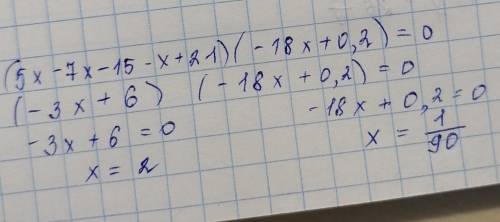 (5x-7x-15-x+21)(-18x+0,2)=0
(-3x+6) (-18x+0,2)=0
-3x+6=0 -18x+0,2=0
x=2 x=1/90